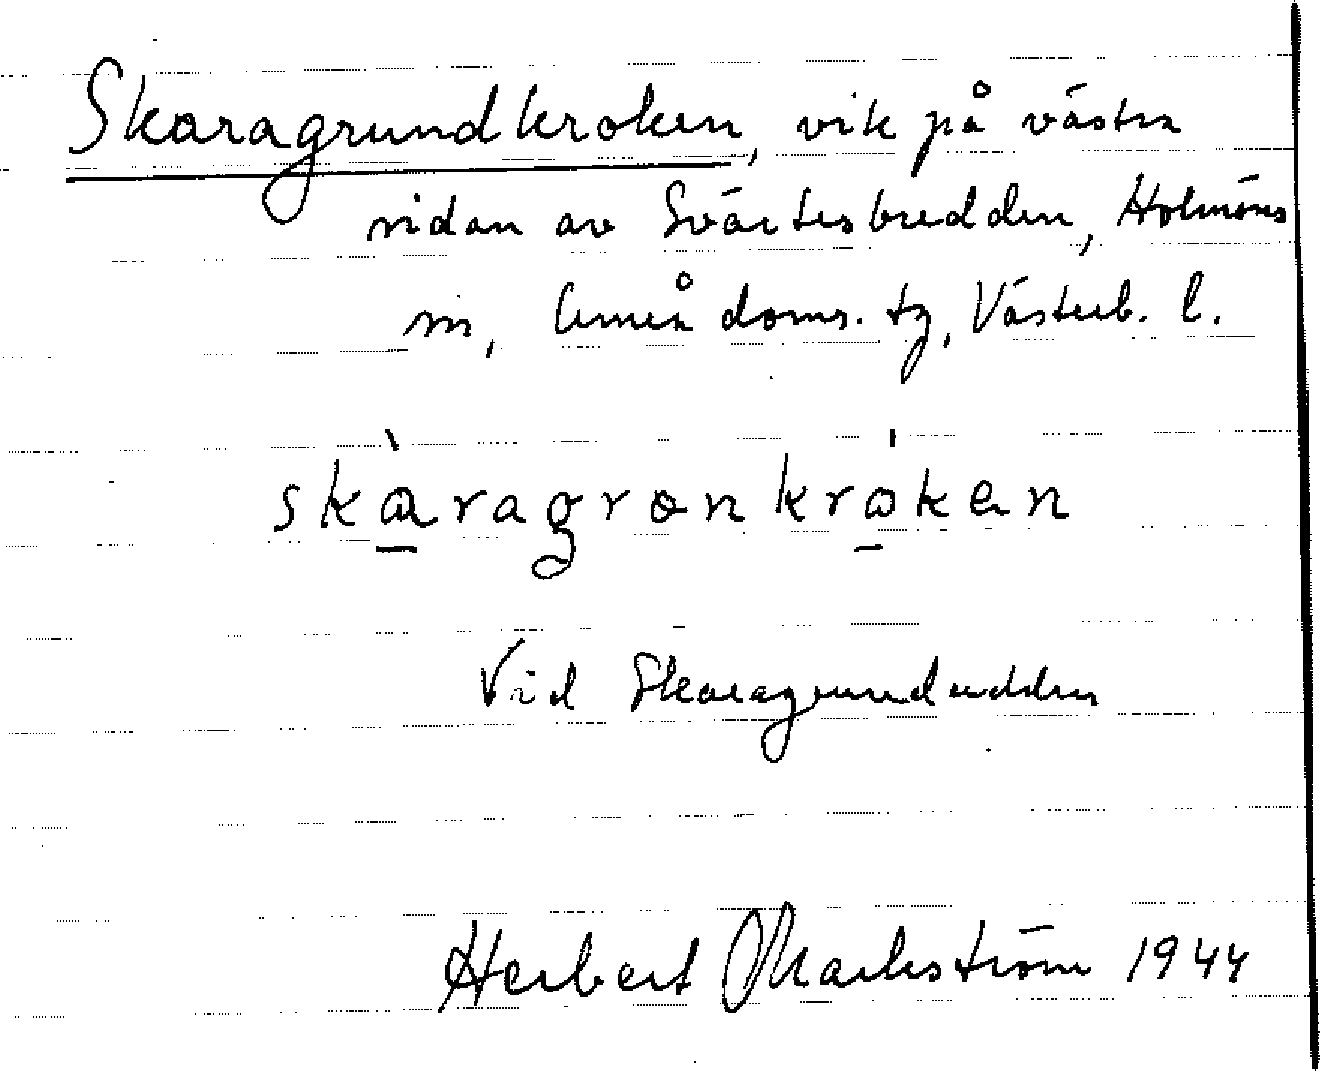 Skaragrundkroken, vik på västra
sidan av Svärtesbredden, Holmöns
sn, Umeå doms. tg, Västerb. l.
skàragronkróken
Vid Skaragrundudden
Herbert Markström 1944